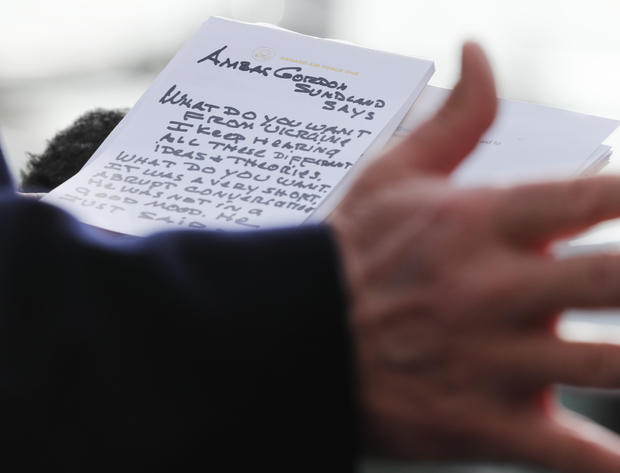 ABOARD AIR FORCE ONE
AMBAS GORDON
SUNDLAND
SAYS
WHAT DO YOU WANT
FROM UKRAINE
I KEEP HEARING
ALL THESE DIFFERENT
IDEAS & THEORIES.
WHAT DO YOU WANT.
IT WAS VERY SHORT,
ABRUPT CONVERSATION
HE WAS NOT IN A
GOOD MOOD. HE
JUST SAID
to